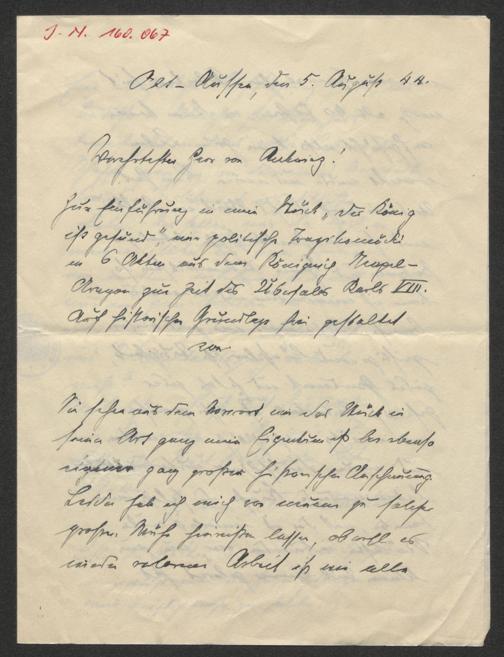 J. N. 160.067
Alt-Aussee, den 5. August 44.
Verehrtester Herr von
Zur Einführung in mein Stück „Der König
ist gesund", eine politische Tragikomödie
in 6 Akten aus dem Königreich Neapel-
Aragon zur Zeit des Überfalles Karls VIII.
Auf historischer Grundlage frei gestaltet
von
Sie sehen aus dem Vorwort das Stück in
seiner Art ganz mein Eigentum ist bei
ganz großer historischer
Leider hab ich mich von neuem zu solch
großer Mühe lassen, obwohl es
wieder Arbeit ist wie alle